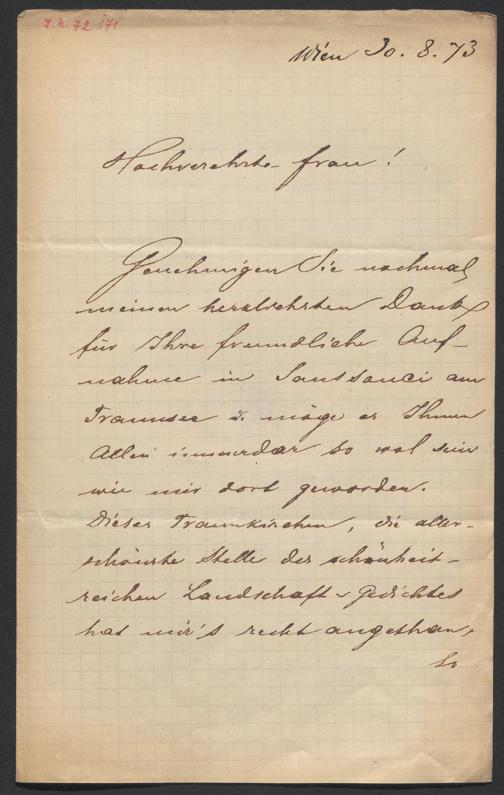 J.N. 72 171
Wien 30. 8. 73
Hochverehrte Frau!
Genehmigen Sie nochmals
meinen herzlichsten Dank
für Ihre freundliche Auf-
nahme in Sanssouci am
Traunsee u. möge es Ihnen
Allen immerdar so wol sein
wie mir dort geworden.
Dieses Traunkirchen, die aller-
schönste Stelle des schönheit-
reichen Landschaft-Gedichtes
hat mir's recht angethan,
So